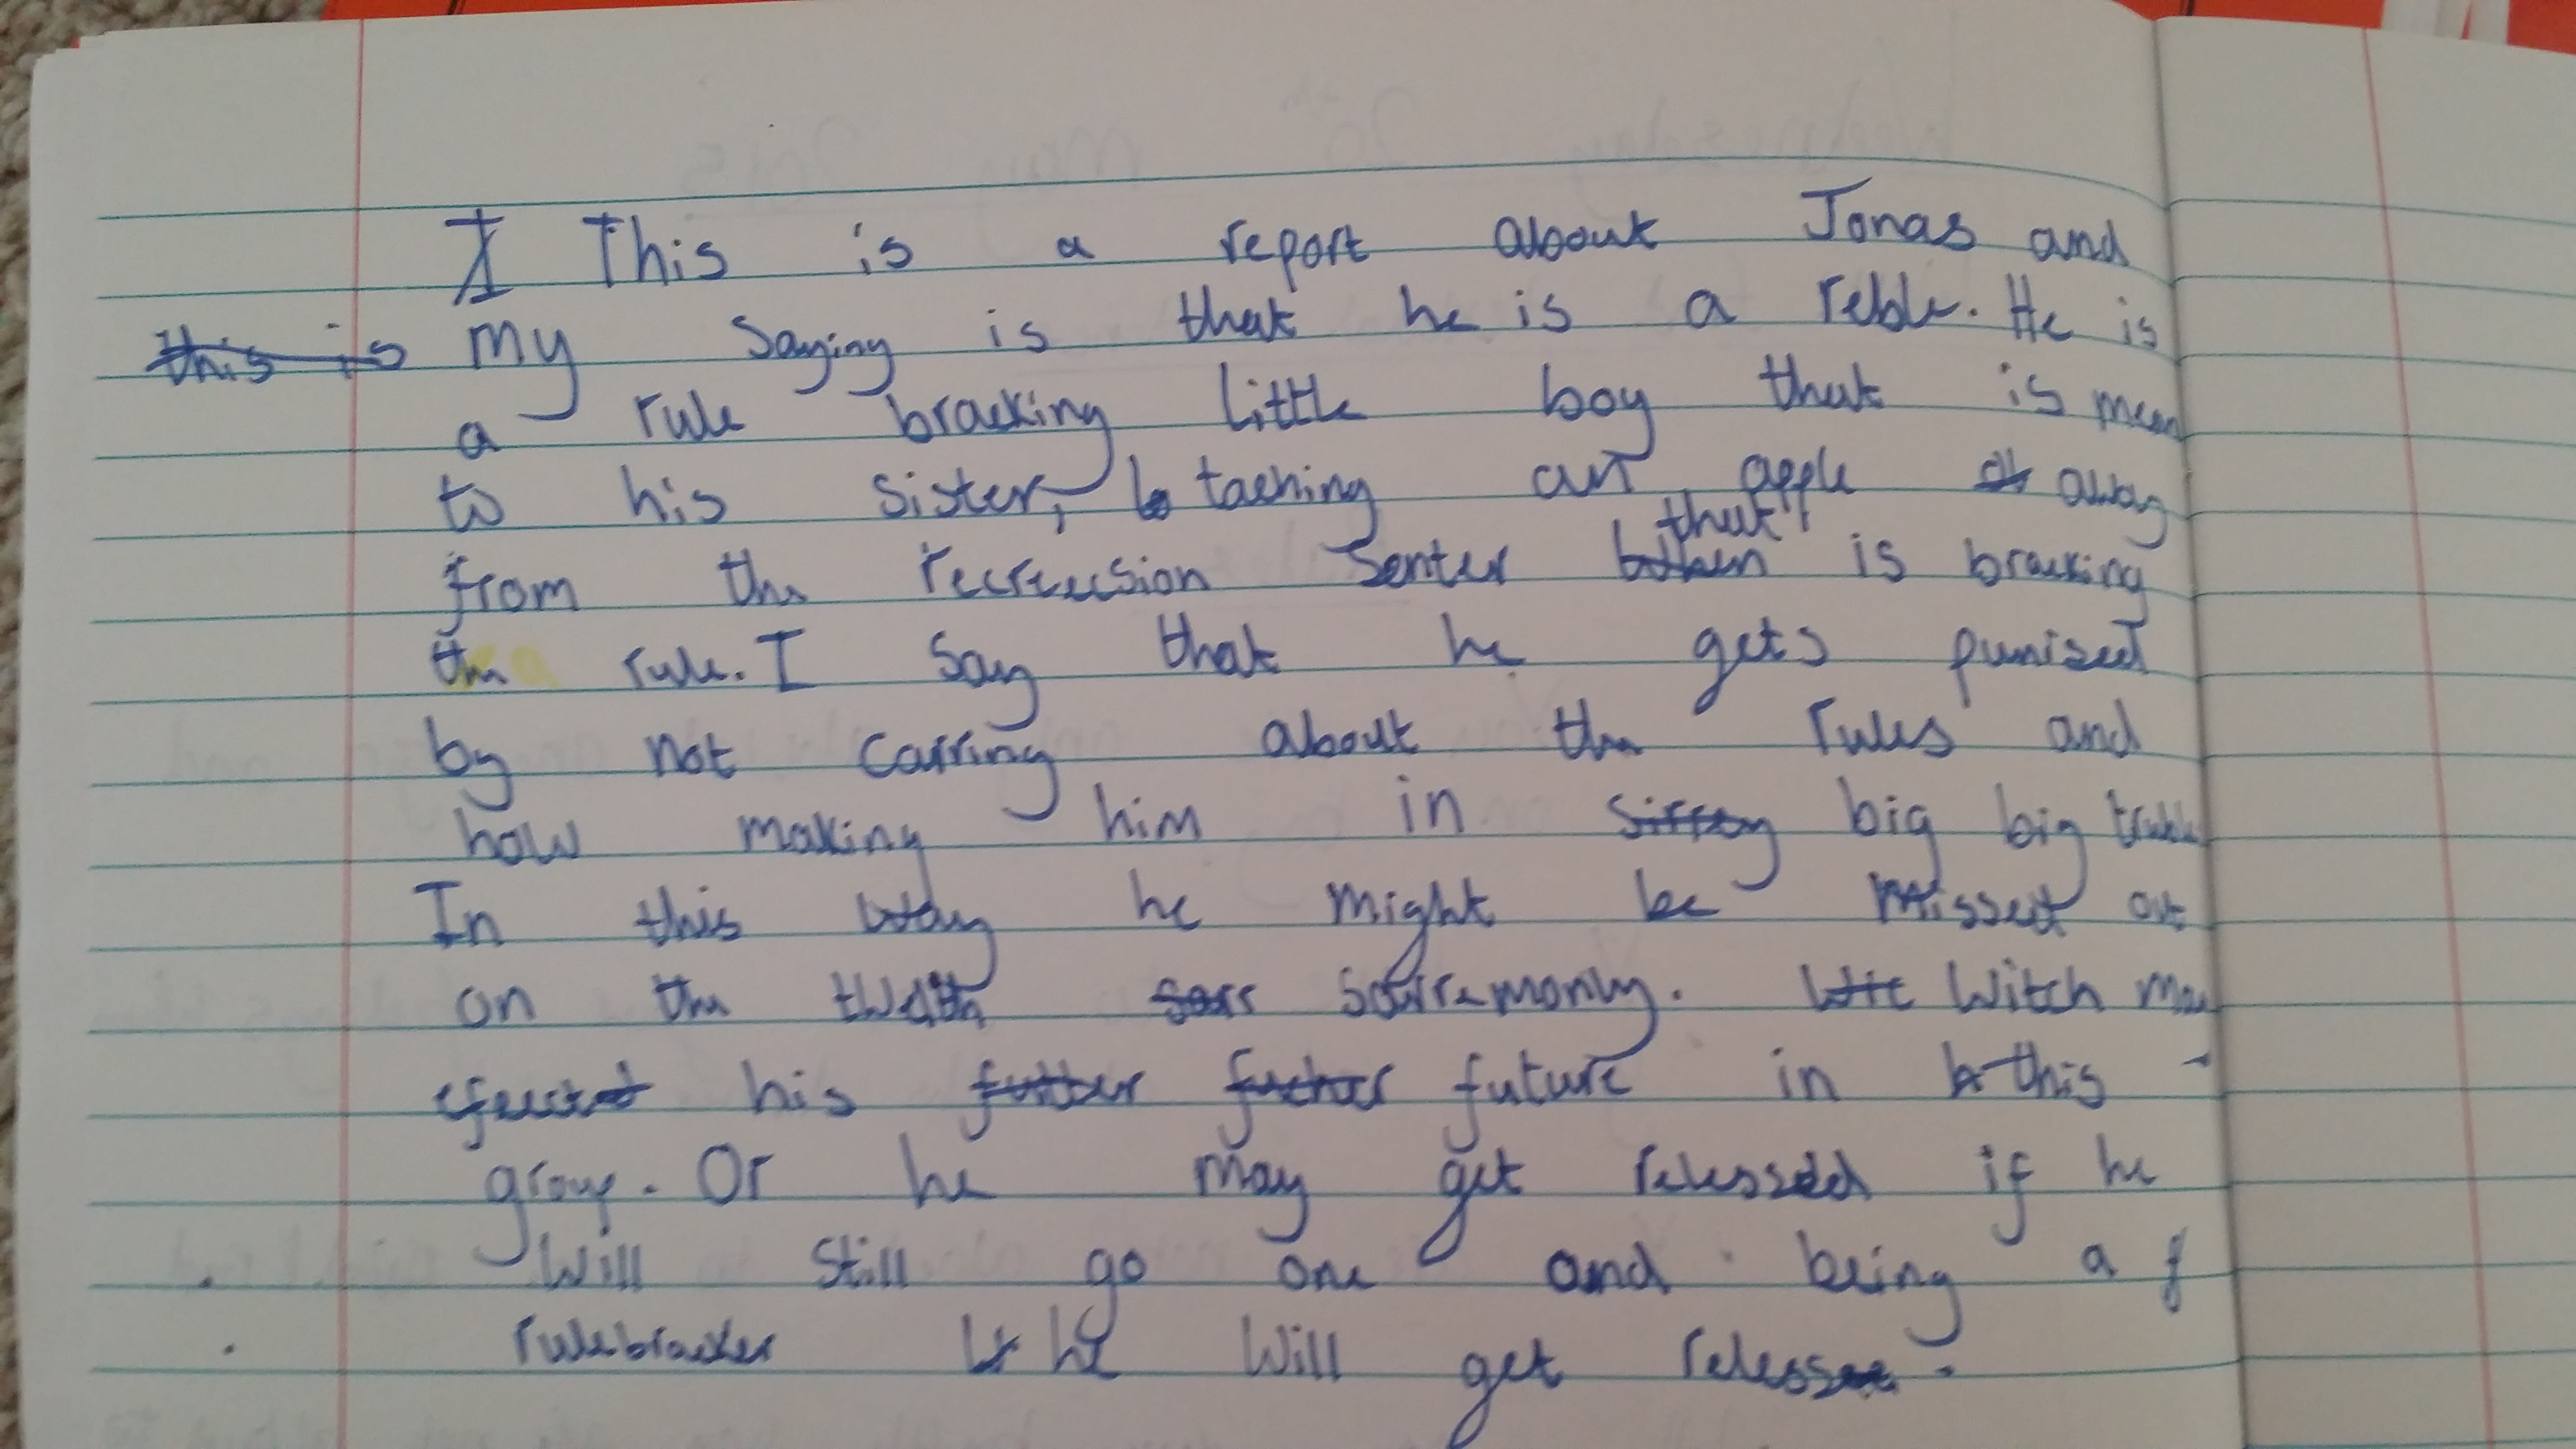 This is a report about Jonas and
this is my saying is that he is a reble. He is
a rule bracking little boy that is mean
to his sister, taching an apple away
from the recreusion Senter that is bracking
the rule. I say that he gets punised
by not carring about the rules and
how making him in big big
In this way he might be missed out
on the twelth Witch
his future in this
group. Or he may get relessed if he
will still go one and being a
rulebracker he will get relesse.